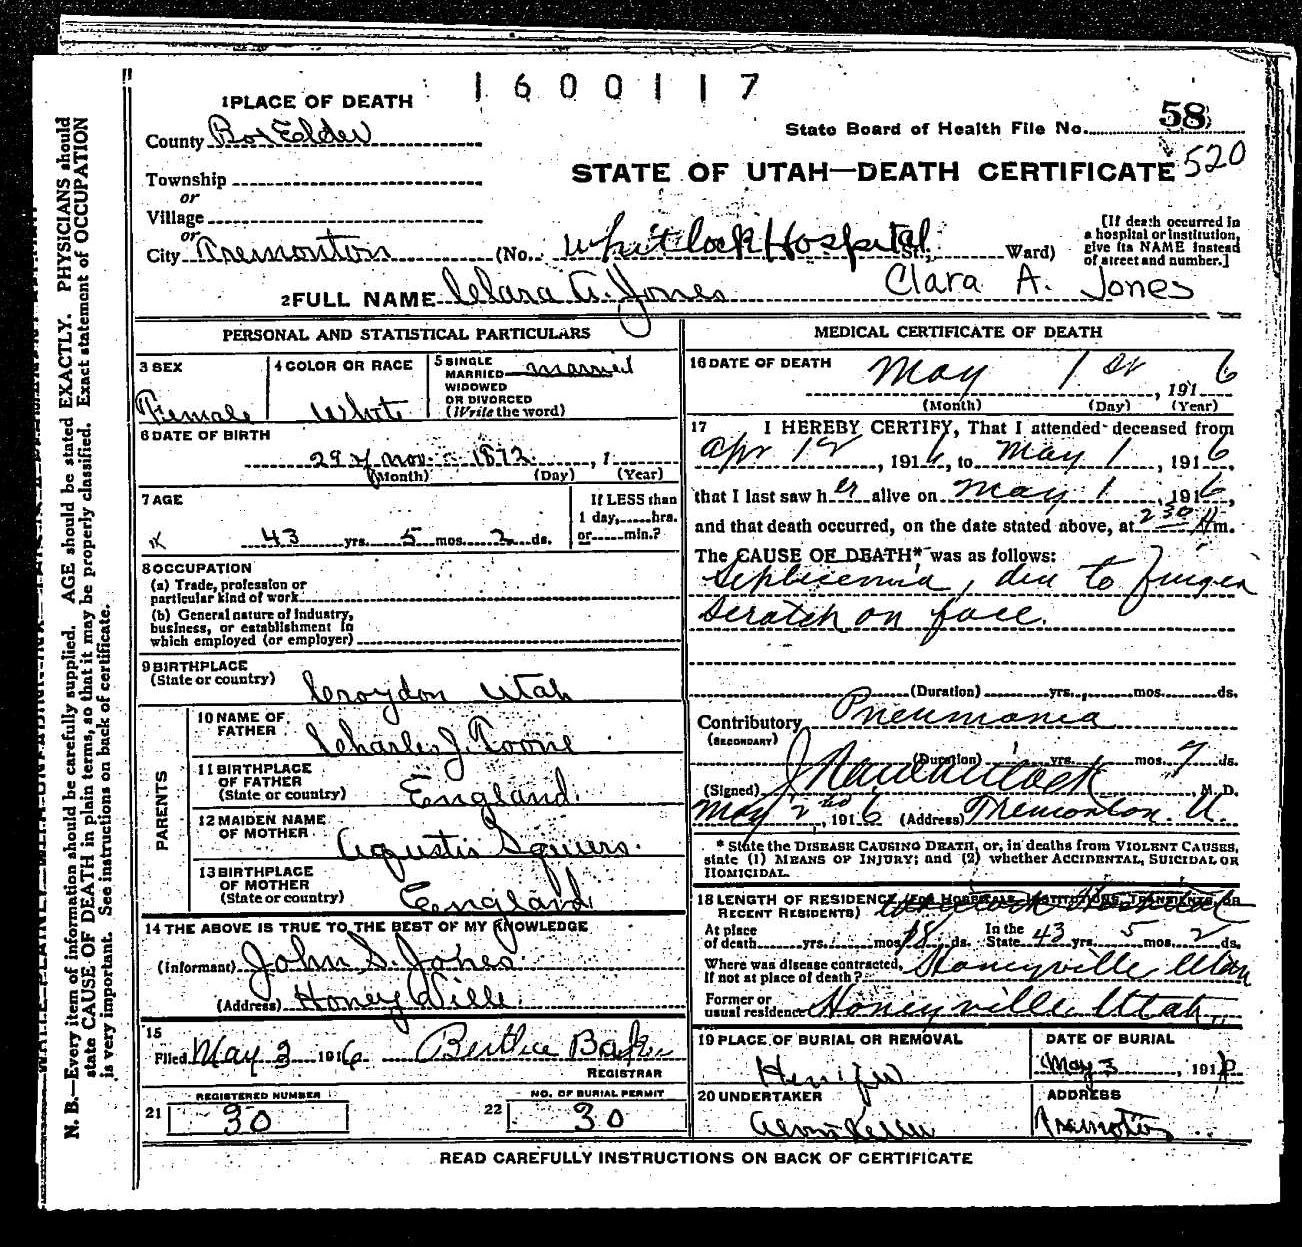 1600117
1 PLACE OF DEATH
County Box Elder
State Board of Health File No. 58
520
Township
or
Village
or
STATE OF UTAH—DEATH CERTIFICATE
City Tremonton (No. Whitlock Hospital St., Ward)
[If death occurred in
a hospital or institution,
give its NAME instead
of street and number.]
2 FULL NAME Clara A. Jones Clara A. Jones
PERSONAL AND STATISTICAL PARTICULARS
3 SEX
Female
4 COLOR OR RACE
White
5 SINGLE
MARRIED married
WIDOWED
OR DIVORCED
(Write the word)
6 DATE OF BIRTH
29 of Nov. 1872, 1
(Month) (Day) (Year)
7 AGE
43 yrs. 5 mos. 2 ds.
If LESS than
1 day, hrs.
or min.?
8 OCCUPATION
(a) Trade, profession or
particular kind of work
(b) General nature of industry,
business, or establishment in
which employed (or employer)
9 BIRTHPLACE
(State or country) Croydon Utah
PARENTS
10 NAME OF
FATHER Charles J. Toone
11 BIRTHPLACE
OF FATHER
(State or country) England.
12 MAIDEN NAME
OF MOTHER Agustis Squires.
13 BIRTHPLACE
OF MOTHER
(State or country) England
14 THE ABOVE IS TRUE TO THE BEST OF MY KNOWLEDGE
(Informant) John S. Jones
(Address) Honeyville
15
Filed May 3 1916 Berthe
REGISTRAR
21 REGISTERED NUMBER
30
22 NO. OF BURIAL PERMIT
30
MEDICAL CERTIFICATE OF DEATH
16 DATE OF DEATH
May 1st, 1916
(Month) (Day) (Year)
17 I HEREBY CERTIFY, That I attended deceased from
Apr 12, 1916, to May 1, 1916,
that I last saw her alive on May 1, 1916,
and that death occurred, on the date stated above, at 2 30 A m.
The CAUSE OF DEATH* was as follows:
Septicemia, due to finger
scratch on face.
(Duration) yrs. mos. ds.
Contributory Pneumonia
(SECONDARY)
(Duration) yrs. mos. 7 ds.
(Signed) M. D.
May 2nd, 1916 (Address) Tremonton. U.
* State the DISEASE CAUSING DEATH, or, in deaths from VIOLENT CAUSES,
state (1) MEANS OF INJURY; and (2) whether ACCIDENTAL, SUICIDAL OR
HOMICIDAL.
18 LENGTH OF RESIDENCE (FOR HOSPITALS, INSTITUTIONS, TRANSIENTS, OR
RECENT RESIDENTS) Whitlock Hospital
At place
of death yrs. mos. 18 ds. In the
State 43 yrs. 5 mos. 2 ds.
Where was disease contracted,
if not at place of death? Honeyville Utah
Former or
usual residence Honeyville Utah
19 PLACE OF BURIAL OR REMOVAL
DATE OF BURIAL
May 3, 1916
20 UNDERTAKER
ADDRESS
Tremonton
READ CAREFULLY INSTRUCTIONS ON BACK OF CERTIFICATE
N. B.—Every item of information should be carefully supplied. AGE should be stated EXACTLY. PHYSICIANS should
state CAUSE OF DEATH in plain terms, so that it may be properly classified. Exact statement of OCCUPATION
is very important. See instructions on back of certificate.